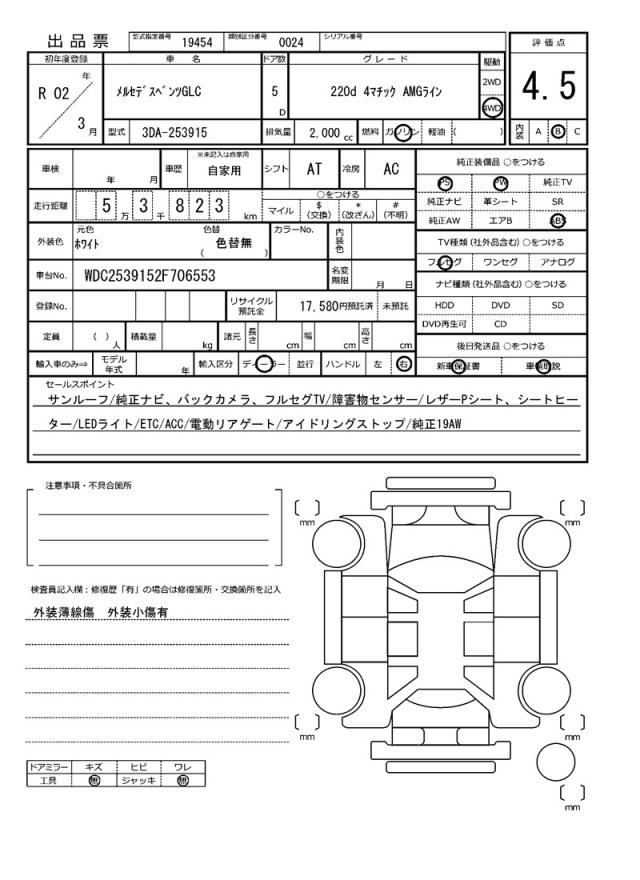 出品票 型式指定番号 19454 類別区分番号 0024 シリアル番号
初年度登録 車 名 ドア数 グレード 駆動 評価点
R 02 年 3 月 メルセデスベンツGLC 5 D 220d 4マチック AMGライン 2WD 4WD 4.5
型式 3DA-253915 排気量 2,000 cc 燃料 ガソリン 軽油 ( ) 内装 A B C
車検 年 月 車歴 ※未記入は自家用 自家用 シフト AT 冷房 AC 純正装備品 ○をつける
PS PW 純正TV
走行距離 5 万 3 千 8 2 3 km ○をつける マイル $ (交換) * (改ざん) # (不明) 純正ナビ 革シート SR
純正AW エアB ABS
外装色 元色 ホワイト 色替 色替無 ( ) カラーNo. 内装色 TV種類 (社外品含む) ○をつける
フルセグ ワンセグ アナログ
車台No. WDC2539152F706553 名変期限 月 日 ナビ種類 (社外品含む) ○をつける
登録No. リサイクル預託金 17,580円預託済 未預託 HDD DVD SD
DVD再生可 CD
定員 ( ) 人 積載量 kg 諸元 長さ cm 幅 cm 高さ cm 後日発送品 ○をつける
輸入車のみ⇒ モデル年式 年 輸入区分 ディーラー 並行 ハンドル 左 右 新車保証書 車輌取説
セールスポイント
サンルーフ/純正ナビ、バックカメラ、フルセグTV/障害物センサー/レザーPシート、シートヒー
ター/LEDライト/ETC/ACC/電動リアゲート/アイドリングストップ/純正19AW
注意事項・不具合箇所
mm mm
検査員記入欄：修復歴「有」の場合は修復箇所・交換箇所を記入
外装薄線傷 外装小傷有
mm mm
ドアミラー キズ ヒビ ワレ
工具 無 ジャッキ 無
mm